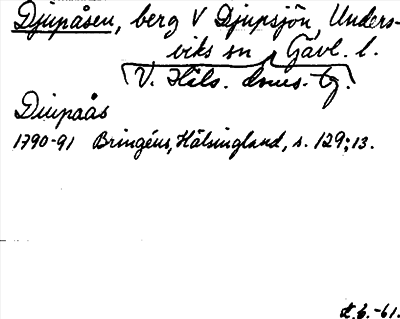 Djupåsen, berg V Djupsjön, Unders-
viks sn, Gävl. l.
V. Häls. doms.-tg.
Diupaås
1790-91 Bringéus, Hälsingland, s. 129; 13.
-61.